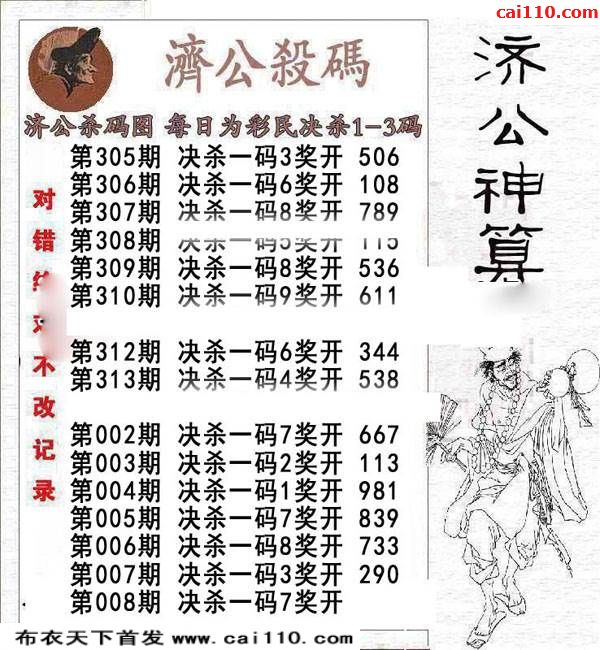 cai110.com
濟公殺碼
济公杀码图 每日为彩民决杀1-3码
第305期 决杀一码3奖开 506
第306期 决杀一码6奖开 108
第307期 决杀一码8奖开 789
第308期 决杀一码5奖开 115
第309期 决杀一码8奖开 536
第310期 决杀一码9奖开 611
第312期 决杀一码6奖开 344
第313期 决杀一码4奖开 538
第002期 决杀一码7奖开 667
第003期 决杀一码2奖开 113
第004期 决杀一码1奖开 981
第005期 决杀一码7奖开 839
第006期 决杀一码8奖开 733
第007期 决杀一码3奖开 290
第008期 决杀一码7奖开
对错
不改记录
济公神算
布衣天下首发 www.cai110.com